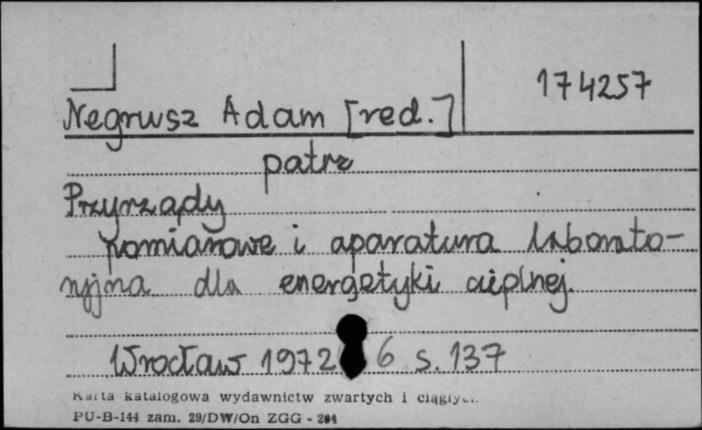 174257
Negrusz Adam [red.]
patrz
Przyrządy
pomiarowe i aparatura laborato-
ryjna dla energetyki cieplnej.
Wrocław 1972 6 s. 137
Karta katalogowa wydawnictw zwartych i ciągłych
PU-B-144 zam. 29/DW/On ZGG - 204